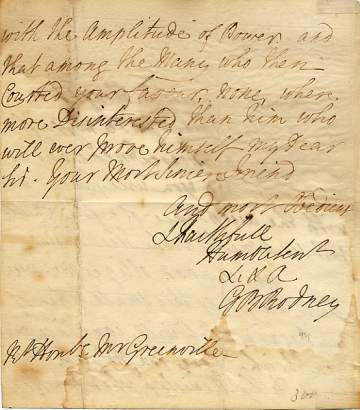 with the Amplitude of Power and
that among the Many who then
Courted your favour, none where
more Disinterested than him who
will ever prove himself my Dear
Sr. Your Most Sincere Friend
And most Obedient
& faithfull
Humble Sert
G B Rodney
Rt Honble Mr Greenville